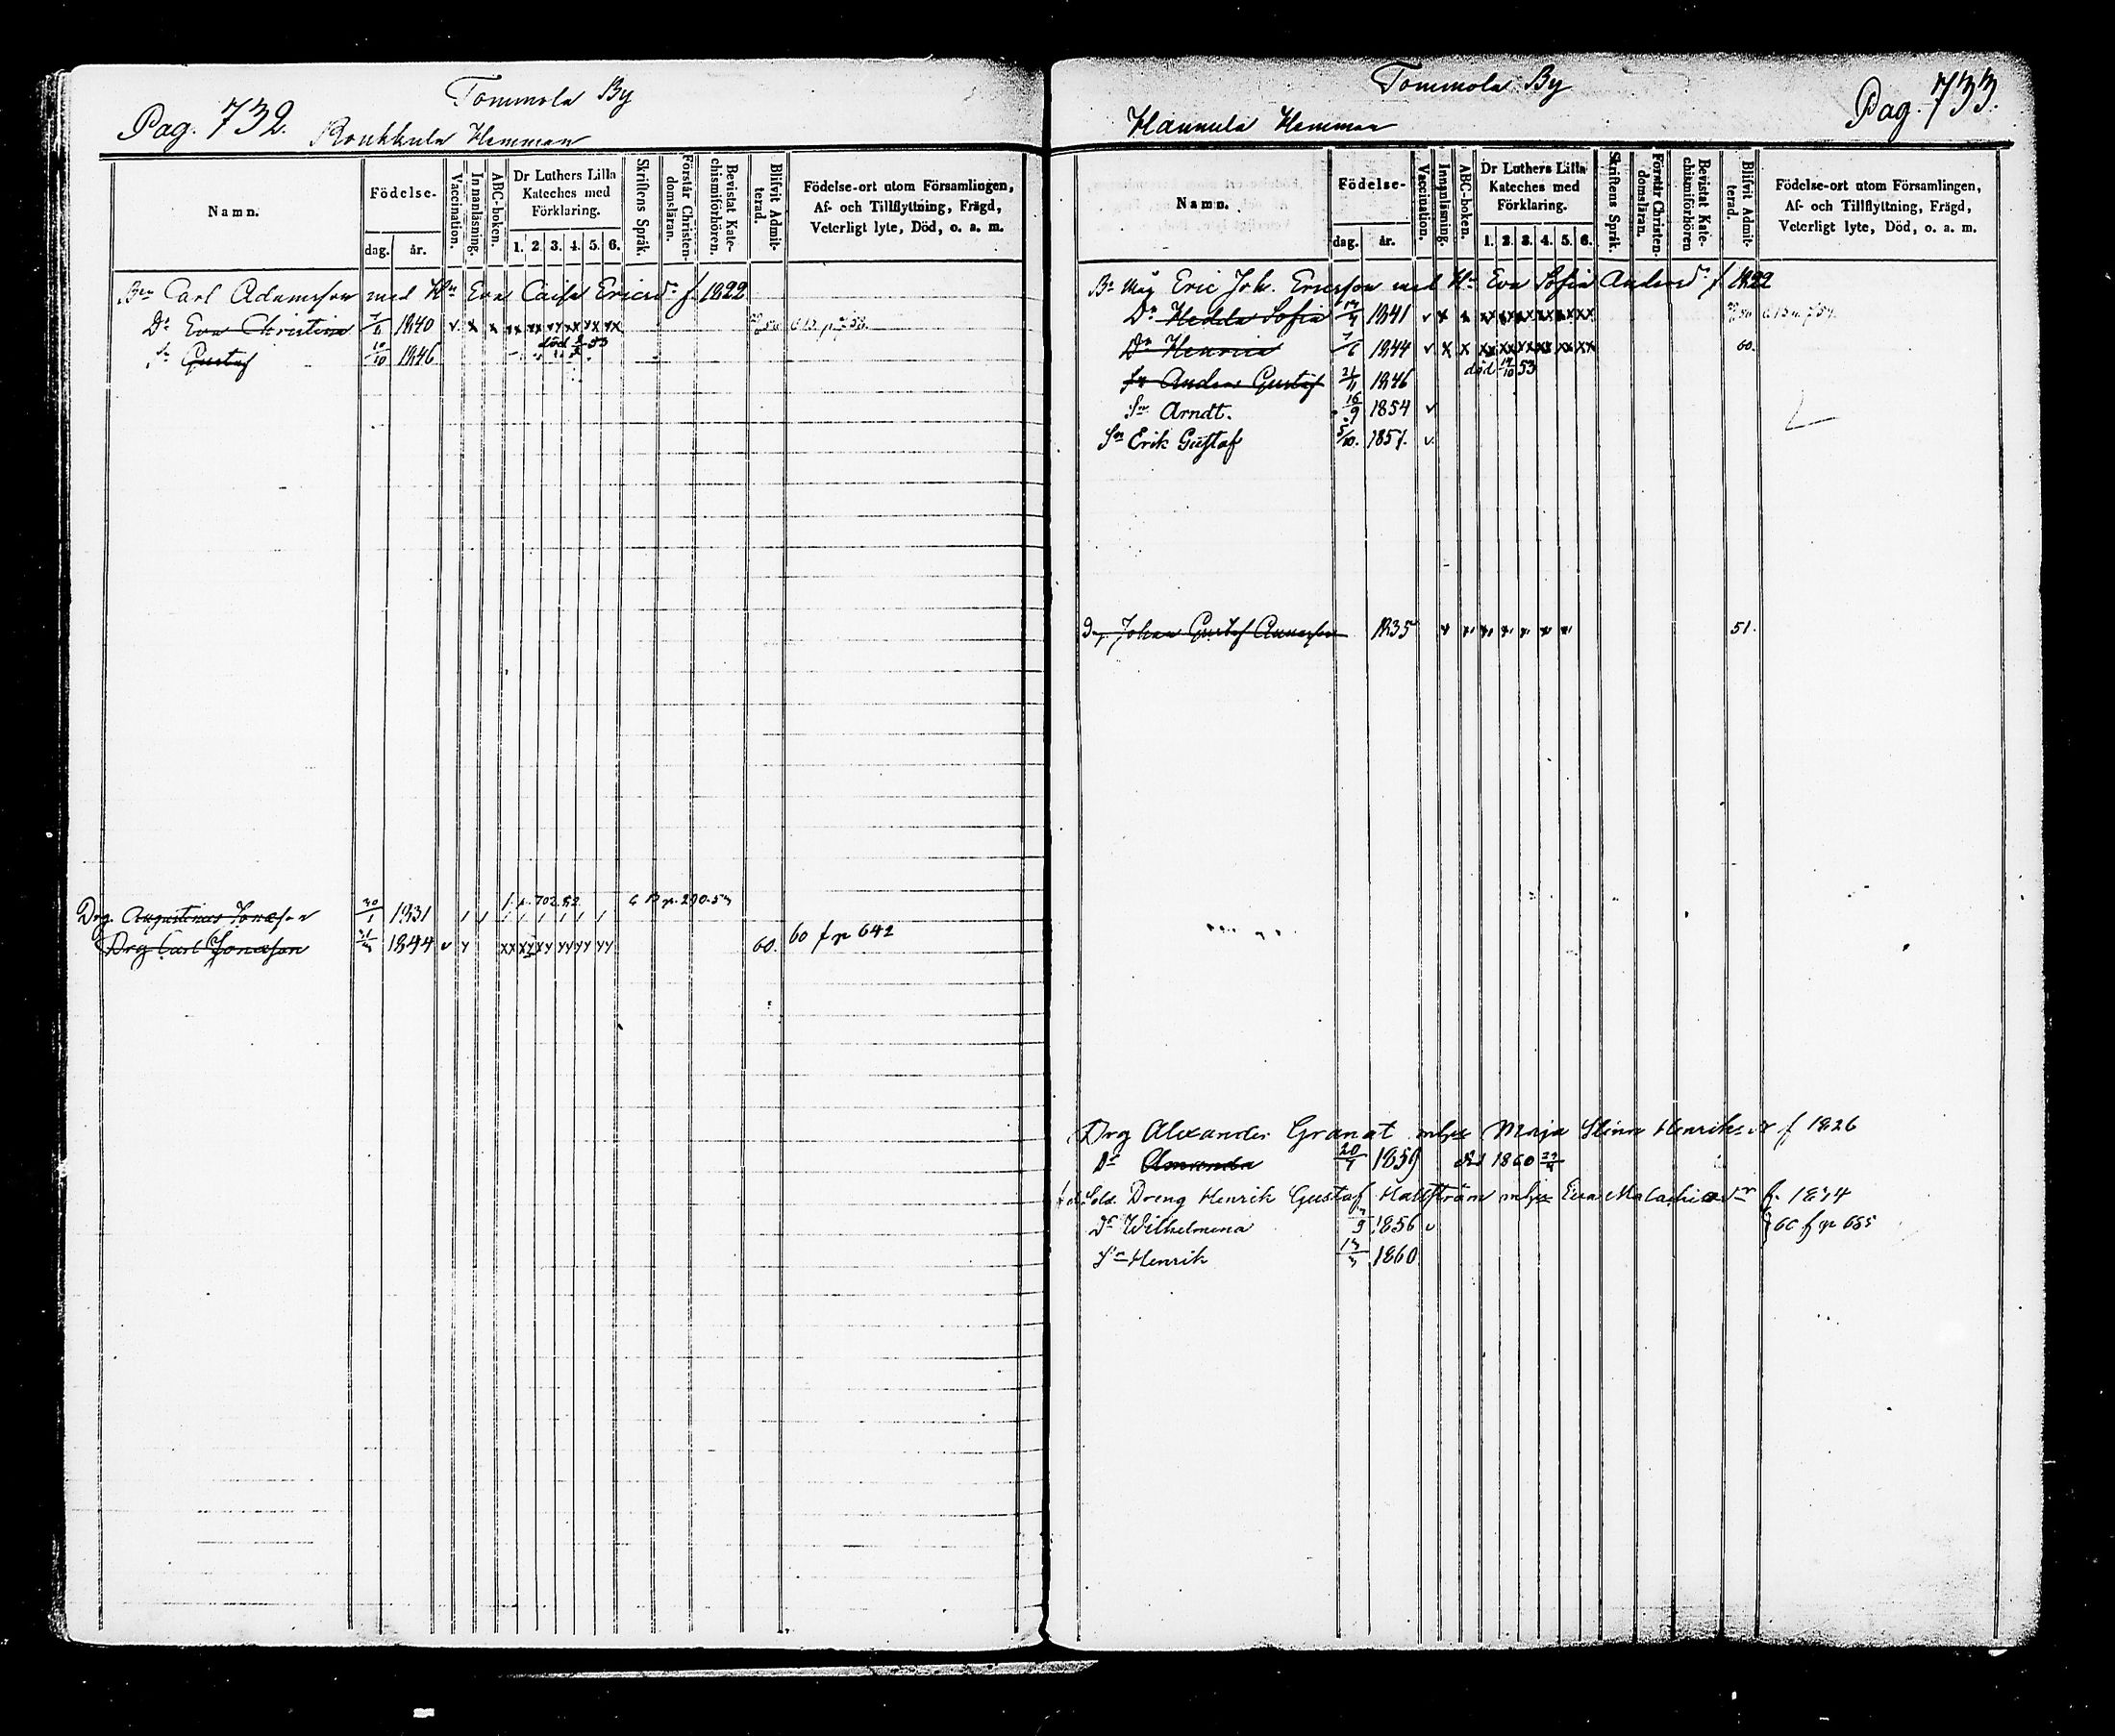 Pag. 732.
Tommola By
Roukkula Hemman
Namn.
Födelse-
dag.
år.
Vaccination.
Innanläsning.
ABC-boken.
Dr Luthers Lilla
Kateches med
Förklaring.
1. 2. 3. 4. 5. 6.
Skriftens Språk.
Förstår Christen-
domsläran.
Bevistat Kate-
chismiförhören.
Blifvit Admit-
terad.
Födelse-ort utom Församlingen,
Af- och Tillflyttning, Frägd,
Veterligt lyte, Död, o. a. m.
Carl Adamsson med Hn Eva Caisa Ericsdr f 1822
Dr Eva Christina 1840 v x x xx xx xx xx xx xx
död 53
Gustaf 10/10 1846
Drg. Augustinus Jonasson 30/1 1831
Drg Carl Jonasson 1844 60. 60 f p 642
Tommola By
Pag. 733.
Hannula Hemman
Namn.
Födelse-
dag.
år.
Vaccination.
Innanläsning.
ABC-boken.
Dr Luthers Lilla
Kateches med
Förklaring.
1. 2. 3. 4. 5. 6.
Skriftens Språk.
Förstår Christen-
domsläran.
Bevistat Kate-
chismiförhören
Blifvit Admit-
terad.
Födelse-ort utom Församlingen,
Af- och Tillflyttning, Frägd,
Veterligt lyte, Död, o. a. m.
Måg Eric Joh. Ericsson med Hn Eva Sofia Andersdr f 1822
Dr Hedda Sofia 1841 v x x xx xx xx xx xx xx
Dr 7/6 1844 v x x xx xx xx xx xx xx 60.
död 14/10 53
Anders Gustaf 21/11 1846
Sn Arndt. 16/9 1854 v
Sn Erik Gustaf 5/10. 1857. v
Johan Gustaf 1835 51.
Drg Alexander Granat Maja Stina Henriksdr f 1826
Dr Amanda 20/7 1859 död 1860
Dreng Henrik Gustaf Hallström Eva
Dr Wilhelmina 1856 v 60 f p 685
Sn Henrik 1860